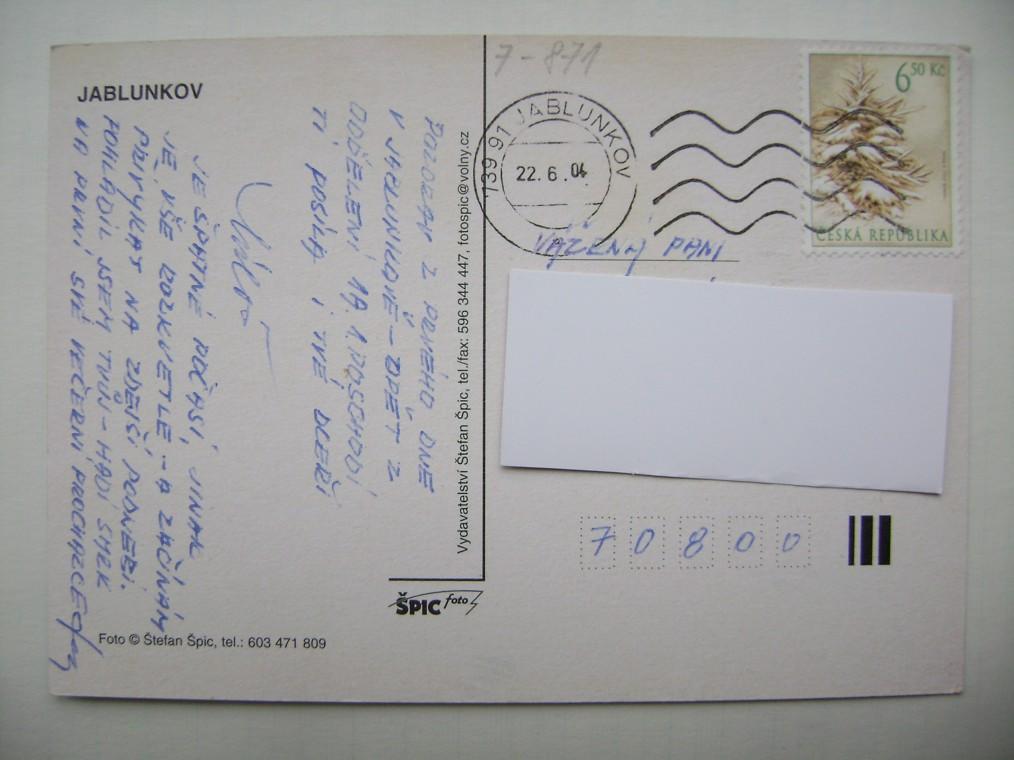 JABLUNKOV
POZDRAV Z PRVÉHO DNE
V JABLUNKOVĚ - OPĚT Z
ODDĚLENÍ 1A. 1. POSCHODÍ
TI POSÍLÁ I TVÉ DCEŘI
JE ŠPATNÉ POČASÍ, JINAK
JE VŠE ROZKVETLÉ - A ZAČÍNÁM
PŘIVYKAT NA ZDEJŠÍ PODNEBÍ.
POHLADIL JSEM TVŮJ - HADÍ SMRK
NA PRVNÍ SVÉ VEČERNÍ PROCHÁZCE
Foto © Štefan Špic, tel.: 603 471 809
Vydavatelství Štefan Špic, tel./fax: 596 344 447, fotospic@volny.cz
ŠPIC foto
7-871
739 91 JABLUNKOV
22.6.04
6 50 Kč
ČESKÁ REPUBLIKA
VÁŽENÁ PANÍ
7 0 8 0 0